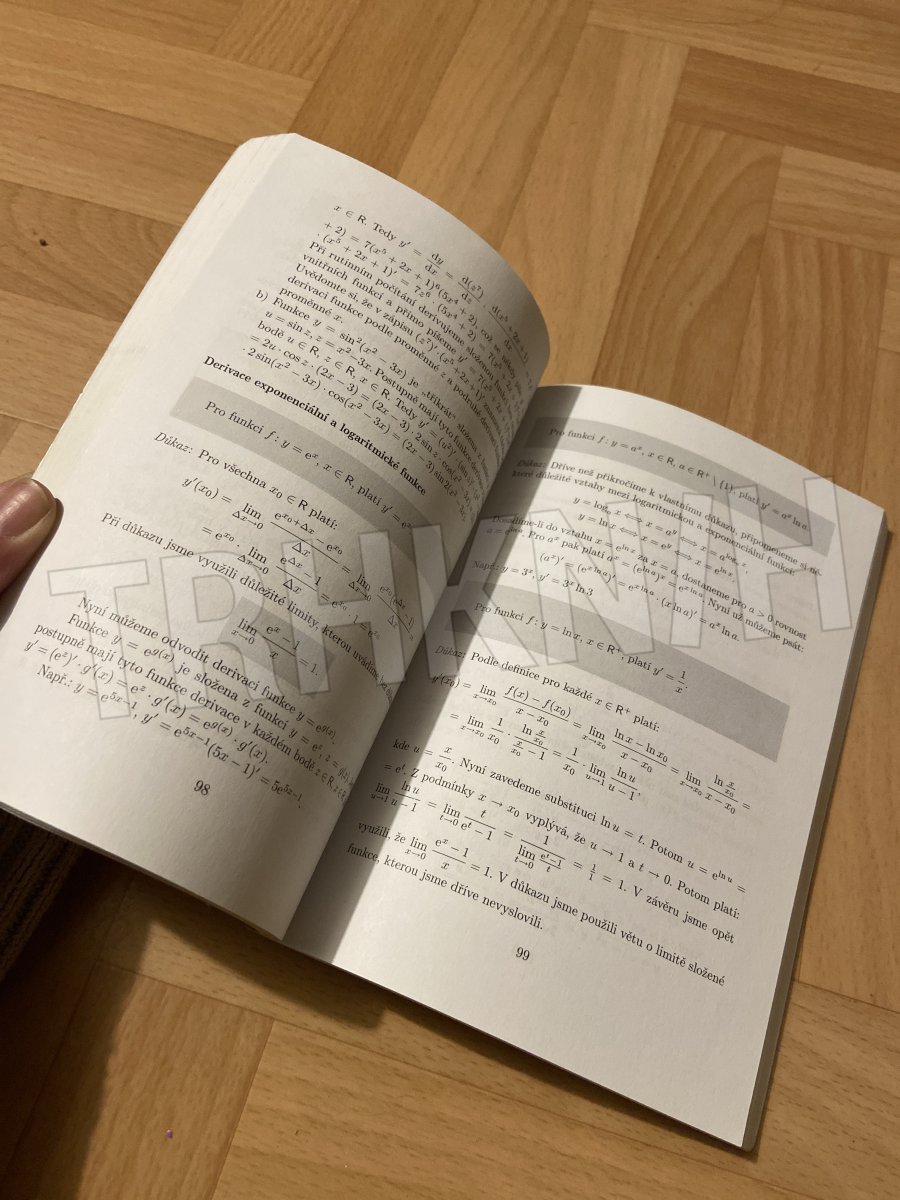 x ∈ R. Tedy y′ = dy/dx = d(z⁷)/dz · d(x⁵ + 2x + 1)/dx
+ 2) = 7(x⁵ + 2x + 1)⁶(5x⁴ + 2), což se někdy
· (x⁵ + 2x + 1)′ = 7z⁶ · (5x⁴ + 2) = 7(x⁵
Při rutinním počítání derivujeme složenou funkci
vnitřních funkcí a přímo píšeme y′ = 7(x⁵ + 2x
Uvědomte si, že v zápisu (z⁷)′·(x⁵+2x+1)′
derivaci funkce podle proměnné z a podruhé derivaci
proměnné x.
b) Funkce y = sin²(x² − 3x) je „třikrát“ složena z
u = sin z, z = x² − 3x. Postupně mají tyto funkce
bodě u ∈ R, z ∈ R, x ∈ R. Tedy y′ = (u²)′
= 2u · cos z · (2x − 3) = (2x − 3) · 2 sin z · cos
· 2 sin(x² − 3x) · cos(x² − 3x) = (2x − 3) sin 2(x²
Derivace exponenciální a logaritmické funkce
Pro funkci f : y = eˣ, x ∈ R, platí y′ = eˣ
Důkaz: Pro všechna x₀ ∈ R platí:
y′(x₀) = lim Δx→0 (e^(x₀+Δx) − e^(x₀))/Δx = lim Δx→0
= e^(x₀) · lim Δx→0 (e^(Δx) − 1)/Δx = e^(x₀) · 1 = e^(x₀)
Při důkazu jsme využili důležité limity, kterou uvádíme
lim x→0 (eˣ − 1)/x = 1.
Nyní můžeme odvodit derivaci funkce y = e^(g(x)).
Funkce y = e^(g(x)) je složena z funkcí y = e^z, z = g(x),
postupně mají tyto funkce derivace v každém bodě z ∈ R, x ∈ R
y′ = (e^z)′ · g′(x) = e^z · g′(x) = e^(g(x)) · g′(x).
Např.: y = e^(5x−1), y′ = e^(5x−1)(5x − 1)′ = 5e^(5x−1).
98
Pro funkci f : y = aˣ, x ∈ R, a ∈ R⁺ \ {1}, platí y′ = aˣ ln a.
Důkaz: Dříve než přikročíme k vlastnímu důkazu, připomeneme si ně-
které důležité vztahy mezi logaritmickou a exponenciální funkcí:
y = logₐ x ⟺ x = a^y ⟺ x = a^(logₐ x),
y = ln x ⟺ x = e^y ⟺ x = e^(ln x).
Dosadíme-li do vztahu x = e^(ln x) za x = a, dostaneme pro a > 0 rovnost
a = e^(ln a). Pro aˣ pak platí aˣ = (e^(ln a))ˣ = e^(x ln a). Nyní už můžeme psát:
(aˣ)′ = (e^(x ln a))′ = e^(x ln a) · (x ln a)′ = aˣ ln a.
Např.: y = 3ˣ, y′ = 3ˣ ln 3
Pro funkci f : y = ln x, x ∈ R⁺, platí y′ = 1/x.
Důkaz: Podle definice pro každé x ∈ R⁺ platí:
y′(x₀) = lim x→x₀ (f(x) − f(x₀))/(x − x₀) = lim x→x₀ (ln x − ln x₀)/(x − x₀) = lim x→x₀ (ln x/x₀)/(x − x₀) =
= lim x→x₀ 1/x₀ · (ln x/x₀)/(x/x₀ − 1) = 1/x₀ · lim u→1 ln u/(u − 1),
kde u = x/x₀. Nyní zavedeme substituci ln u = t. Potom u = e^(ln u) =
= e^t. Z podmínky x → x₀ vyplývá, že u → 1 a t → 0. Potom platí:
lim u→1 ln u/(u − 1) = lim t→0 t/(e^t − 1) = 1/(lim t→0 (e^t − 1)/t) = 1/1 = 1. V závěru jsme opět
využili, že lim x→0 (eˣ − 1)/x = 1. V důkazu jsme použili větu o limitě složené
funkce, kterou jsme dříve nevyslovili.
99
TRHKNIH